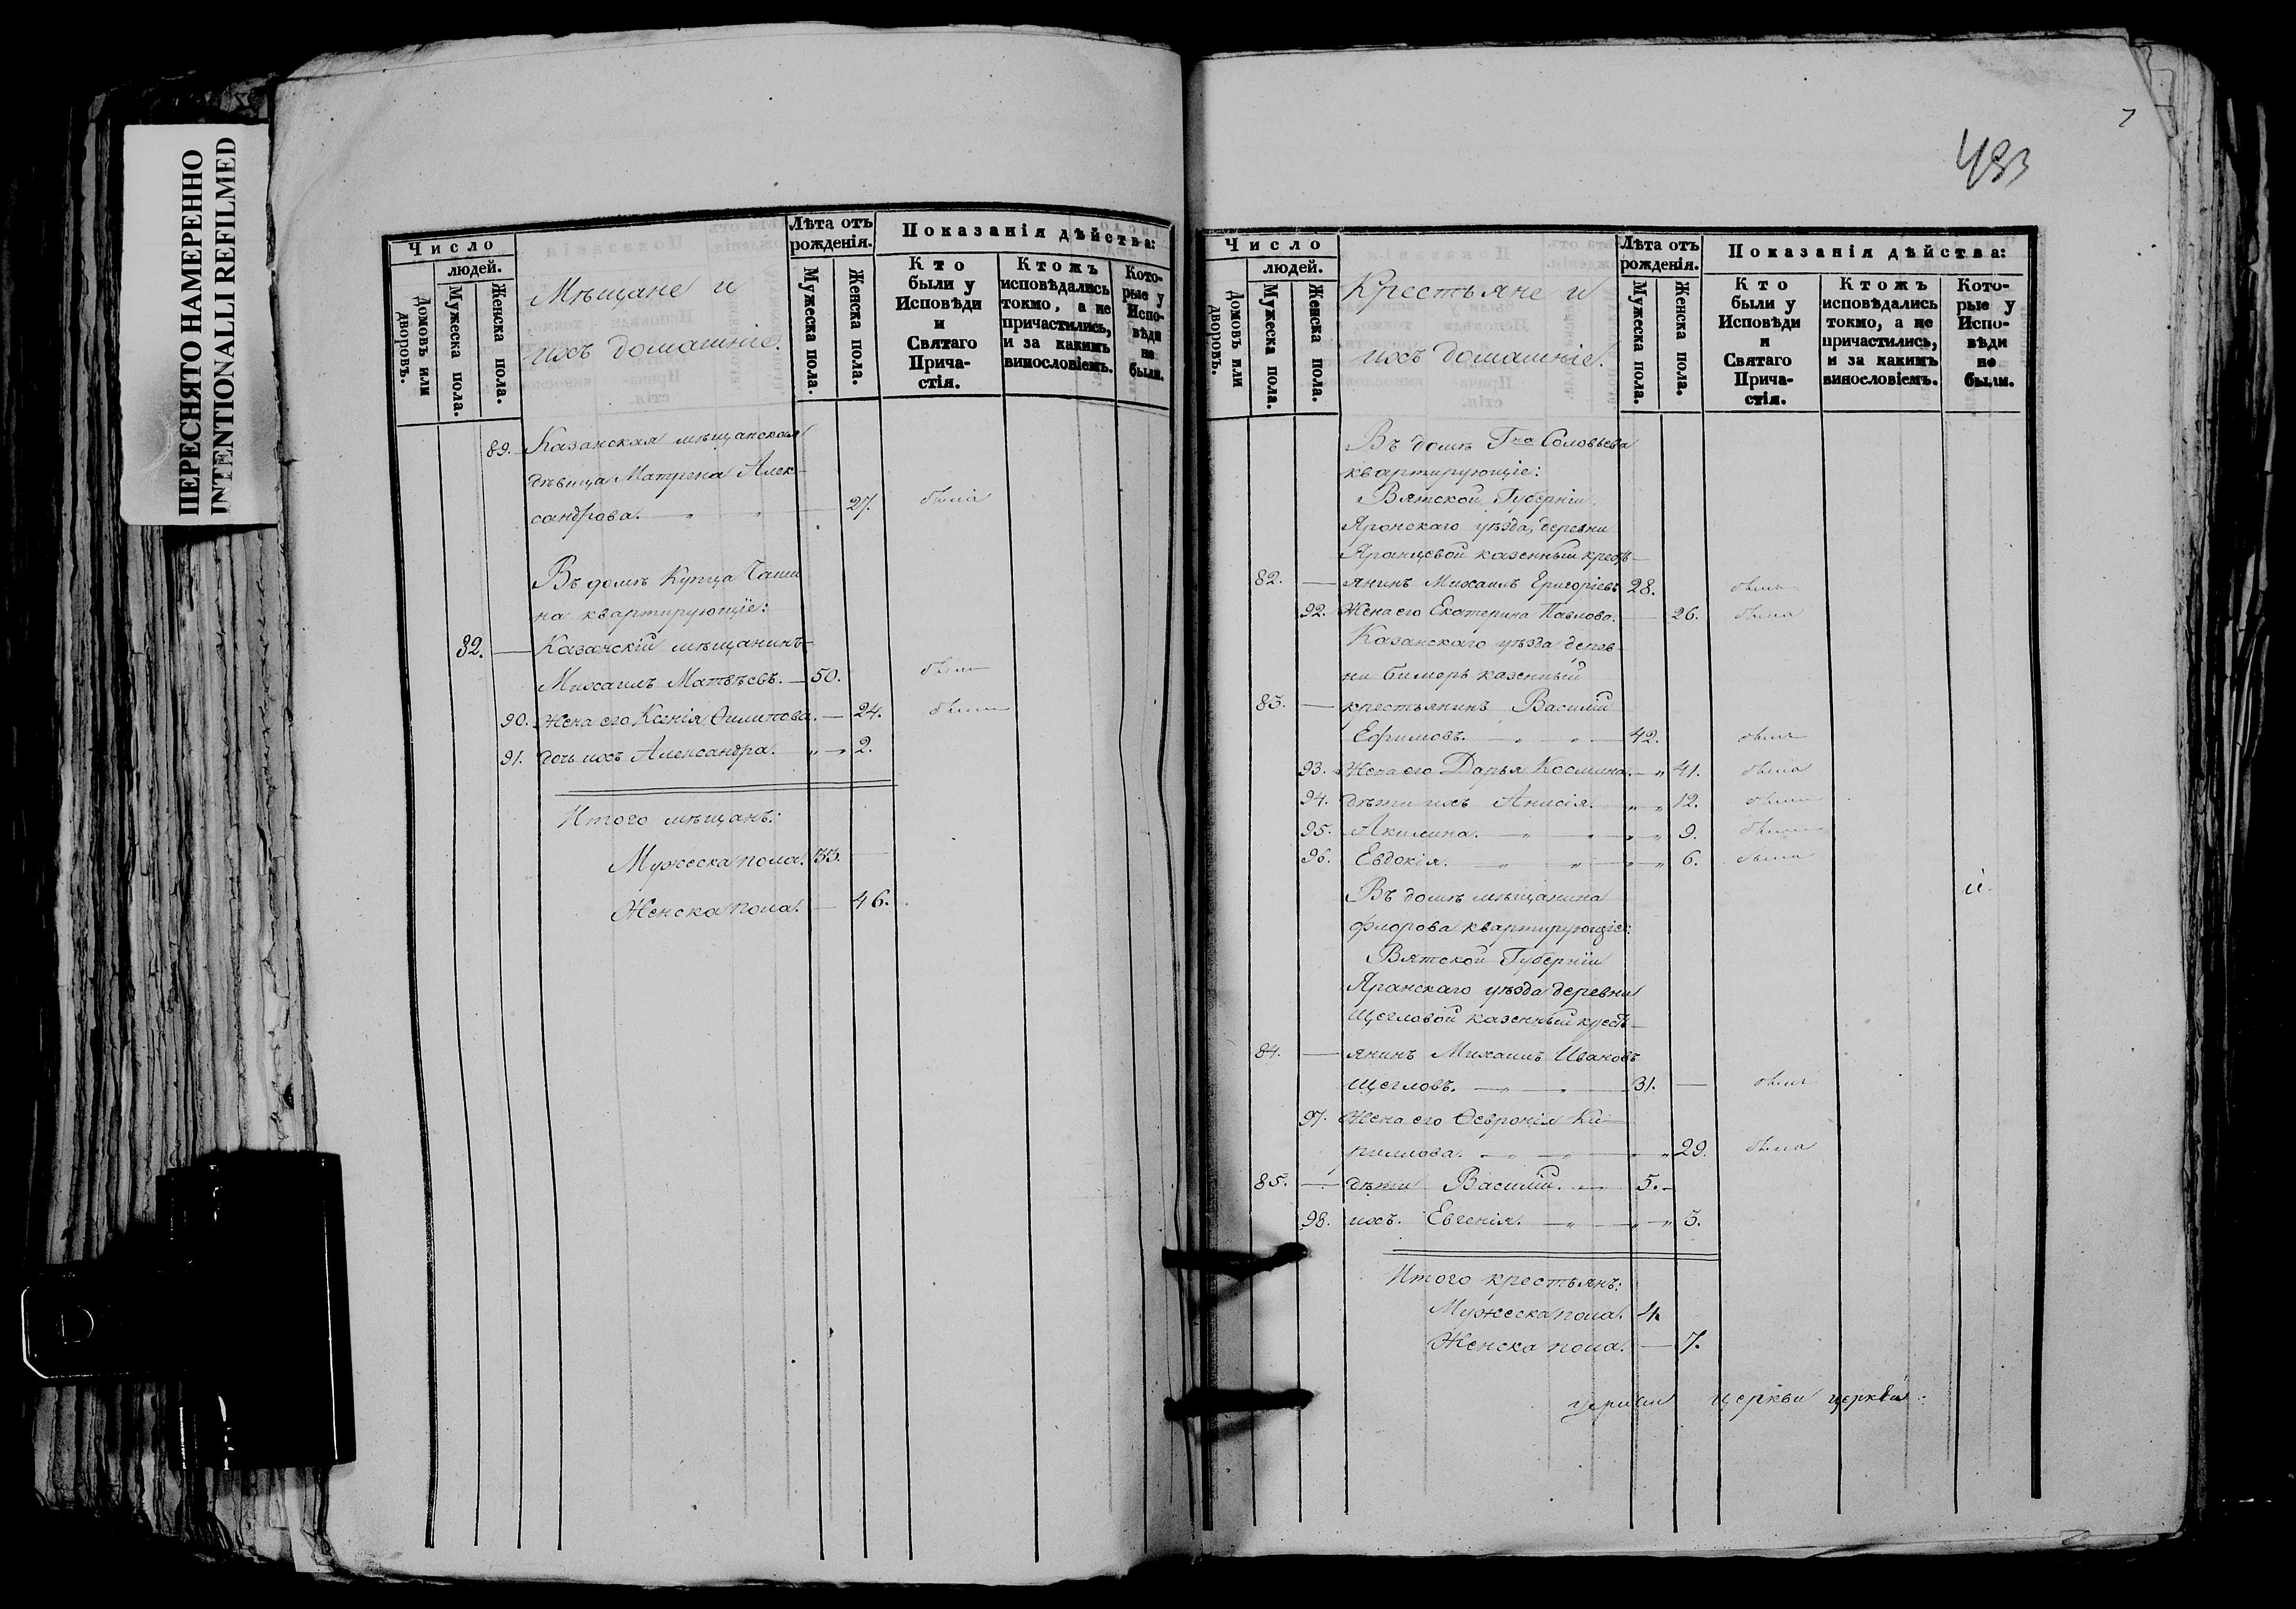 ПЕРЕСНЯТО НАМЕРЕННО
INTENTIONALLI REFILMED
Число
людей.
Домовъ или дворовъ.
Мужеска пола.
Женска пола.
Мѣщане и
ихъ домашніе.
Лѣта отъ
рожденія.
Мужеска пола.
Женска пола.
Показанія дѣйства:
Кто
были у
Исповѣди
и
Святаго
Прича-
стія.
Ктожъ
исповѣдались
токмо, а не
причастились,
и за какимъ
винословіемъ.
Кото-
рые у
Испо-
вѣди
не
были.
89. Казанская мѣщанская
дѣвица Матрена Алек-
сандрова. 27. была
Въ домѣ Купца Чаши
на квартирующіе:
82. Казанскій мѣщанинъ
Михаилъ Матвѣевъ. 50. былъ
90. Жена его Ксенія Филипова. 24. была
91. дочь ихъ Александра. 2.
Итого мѣщанъ:
Мужеска пола. 33.
Женска пола. 46.
7
483
Число
людей.
Домовъ или дворовъ.
Мужеска пола.
Женска пола.
Крестьяне и
ихъ домашніе.
Лѣта отъ
рожденія.
Мужеска пола.
Женска пола.
Показанія дѣйства:
Кто
были у
Исповѣди
и
Святаго
Прича-
стія.
Ктожъ
исповѣдались
токмо, а не
причастились,
и за какимъ
винословіемъ.
Кото-
рые у
Испо-
вѣди
не
были.
Въ домѣ Гна Соловьева
квартирующіе:
Вятской Губерніи
Яронскаго уѣзда, деревни
Яранцевой казенный кресть-
82. янинъ Михаилъ Григоріевъ 28. былъ
92. Жена его Екатерина Павлова. 26. была
Казанскаго уѣзда дерев-
ни Бимерь казенный
83. крестьянинъ Василій
Ефимовъ. 42. былъ
93. Жена его Дарья Космина. 41. была
94. дѣти ихъ Анисія. 12. была
95. Акилина. 9. была
96. Евдокія. 6. была
Въ домѣ мѣщанина
Флорова квартирующіе:
Вятской Губерніи
Яранскаго уѣзда деревни
Щегловой казенный кресть-
84. янинъ Михаилъ Ивановъ
Щегловъ. 31. былъ
97. Жена его Ѳевронія Ки-
рилова. 29. была
85. дѣти Василій. 5.
98. ихъ. Евгенія. 3.
Итого крестьянъ:
Мужеска пола. 4.
Женска пола. 7.
церкви церкви